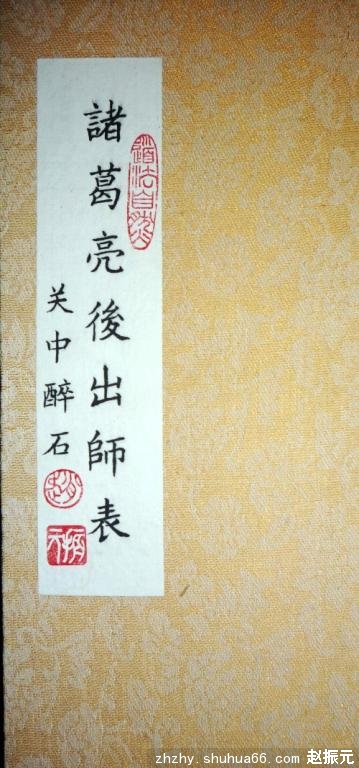 諸葛亮後出師表
道法自然
关中醉石
zhzhy.shuhua66.com 赵振元